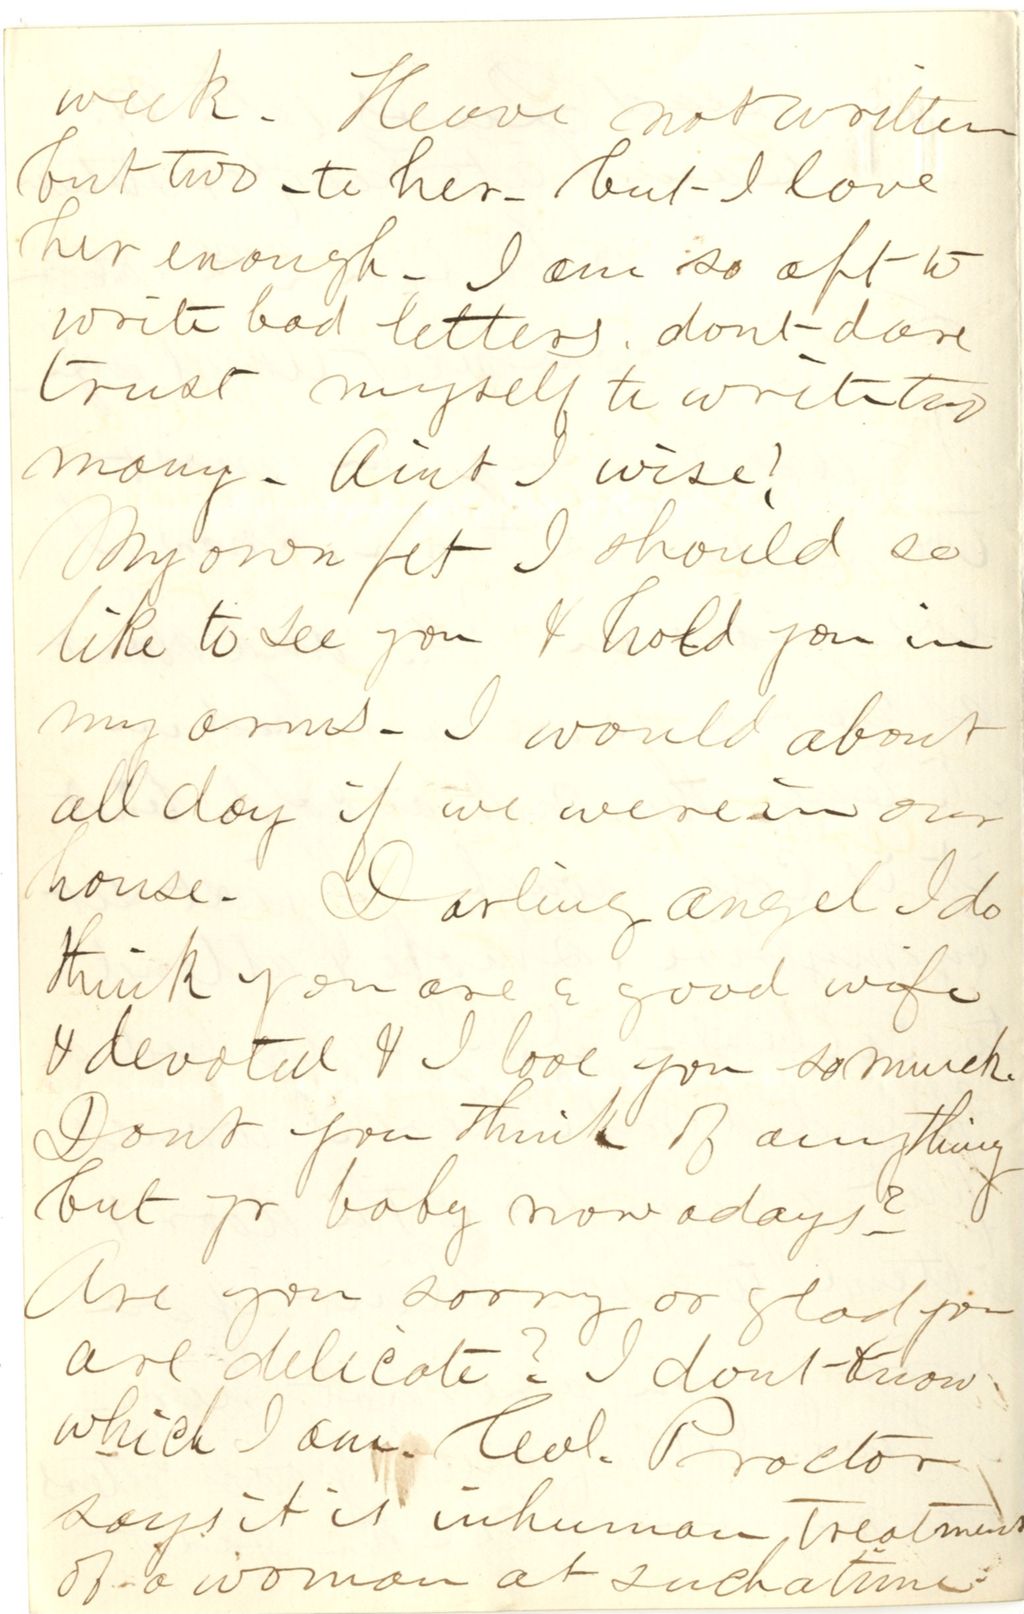 week. Have not written
but two to her - but I love
her enough - I am so apt to
write bad letters. dont dare
trust myself to write two
many - Aint I wise!
My own pet I should so
like to see you & hold you in
my arms - I would about
all day if we were in our
house. Darling angel I do
think you are a good wife
& devoted & I love you so much.
Dont you think of anything
but yr baby now adays?
Are you sorry or glad you
are delicate? I dont know
which I am. Col. Proctor
says it is inhuman treatment
of a woman at such a time